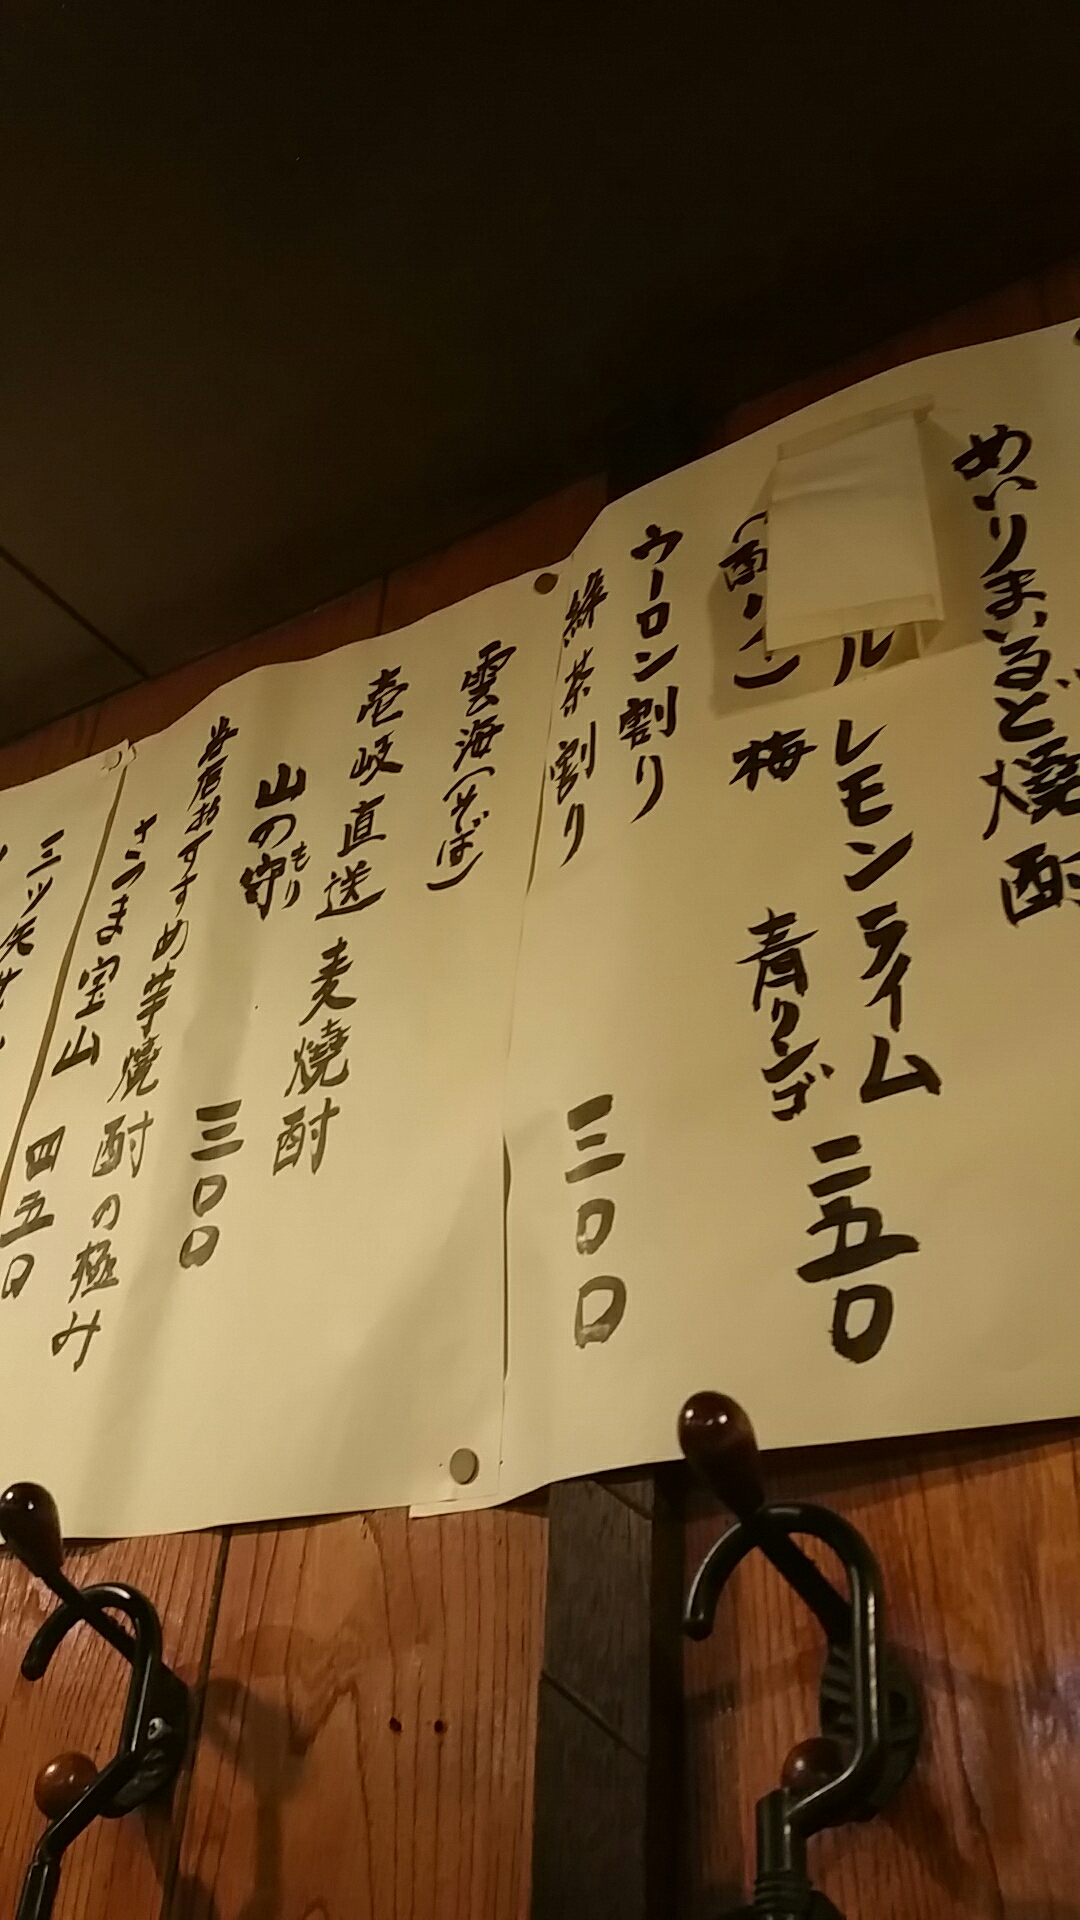 めいりまいるど焼酎
ル レモン ライム
梅 青リンゴ 二五〇
ウーロン割り
緑茶割り 三〇〇
雲海(そば)
壱岐直送 麦焼酎
山の守 もり 三〇〇
当店おすすめ芋焼酎の極み
さつま宝山 四五〇
三ツ矢サ